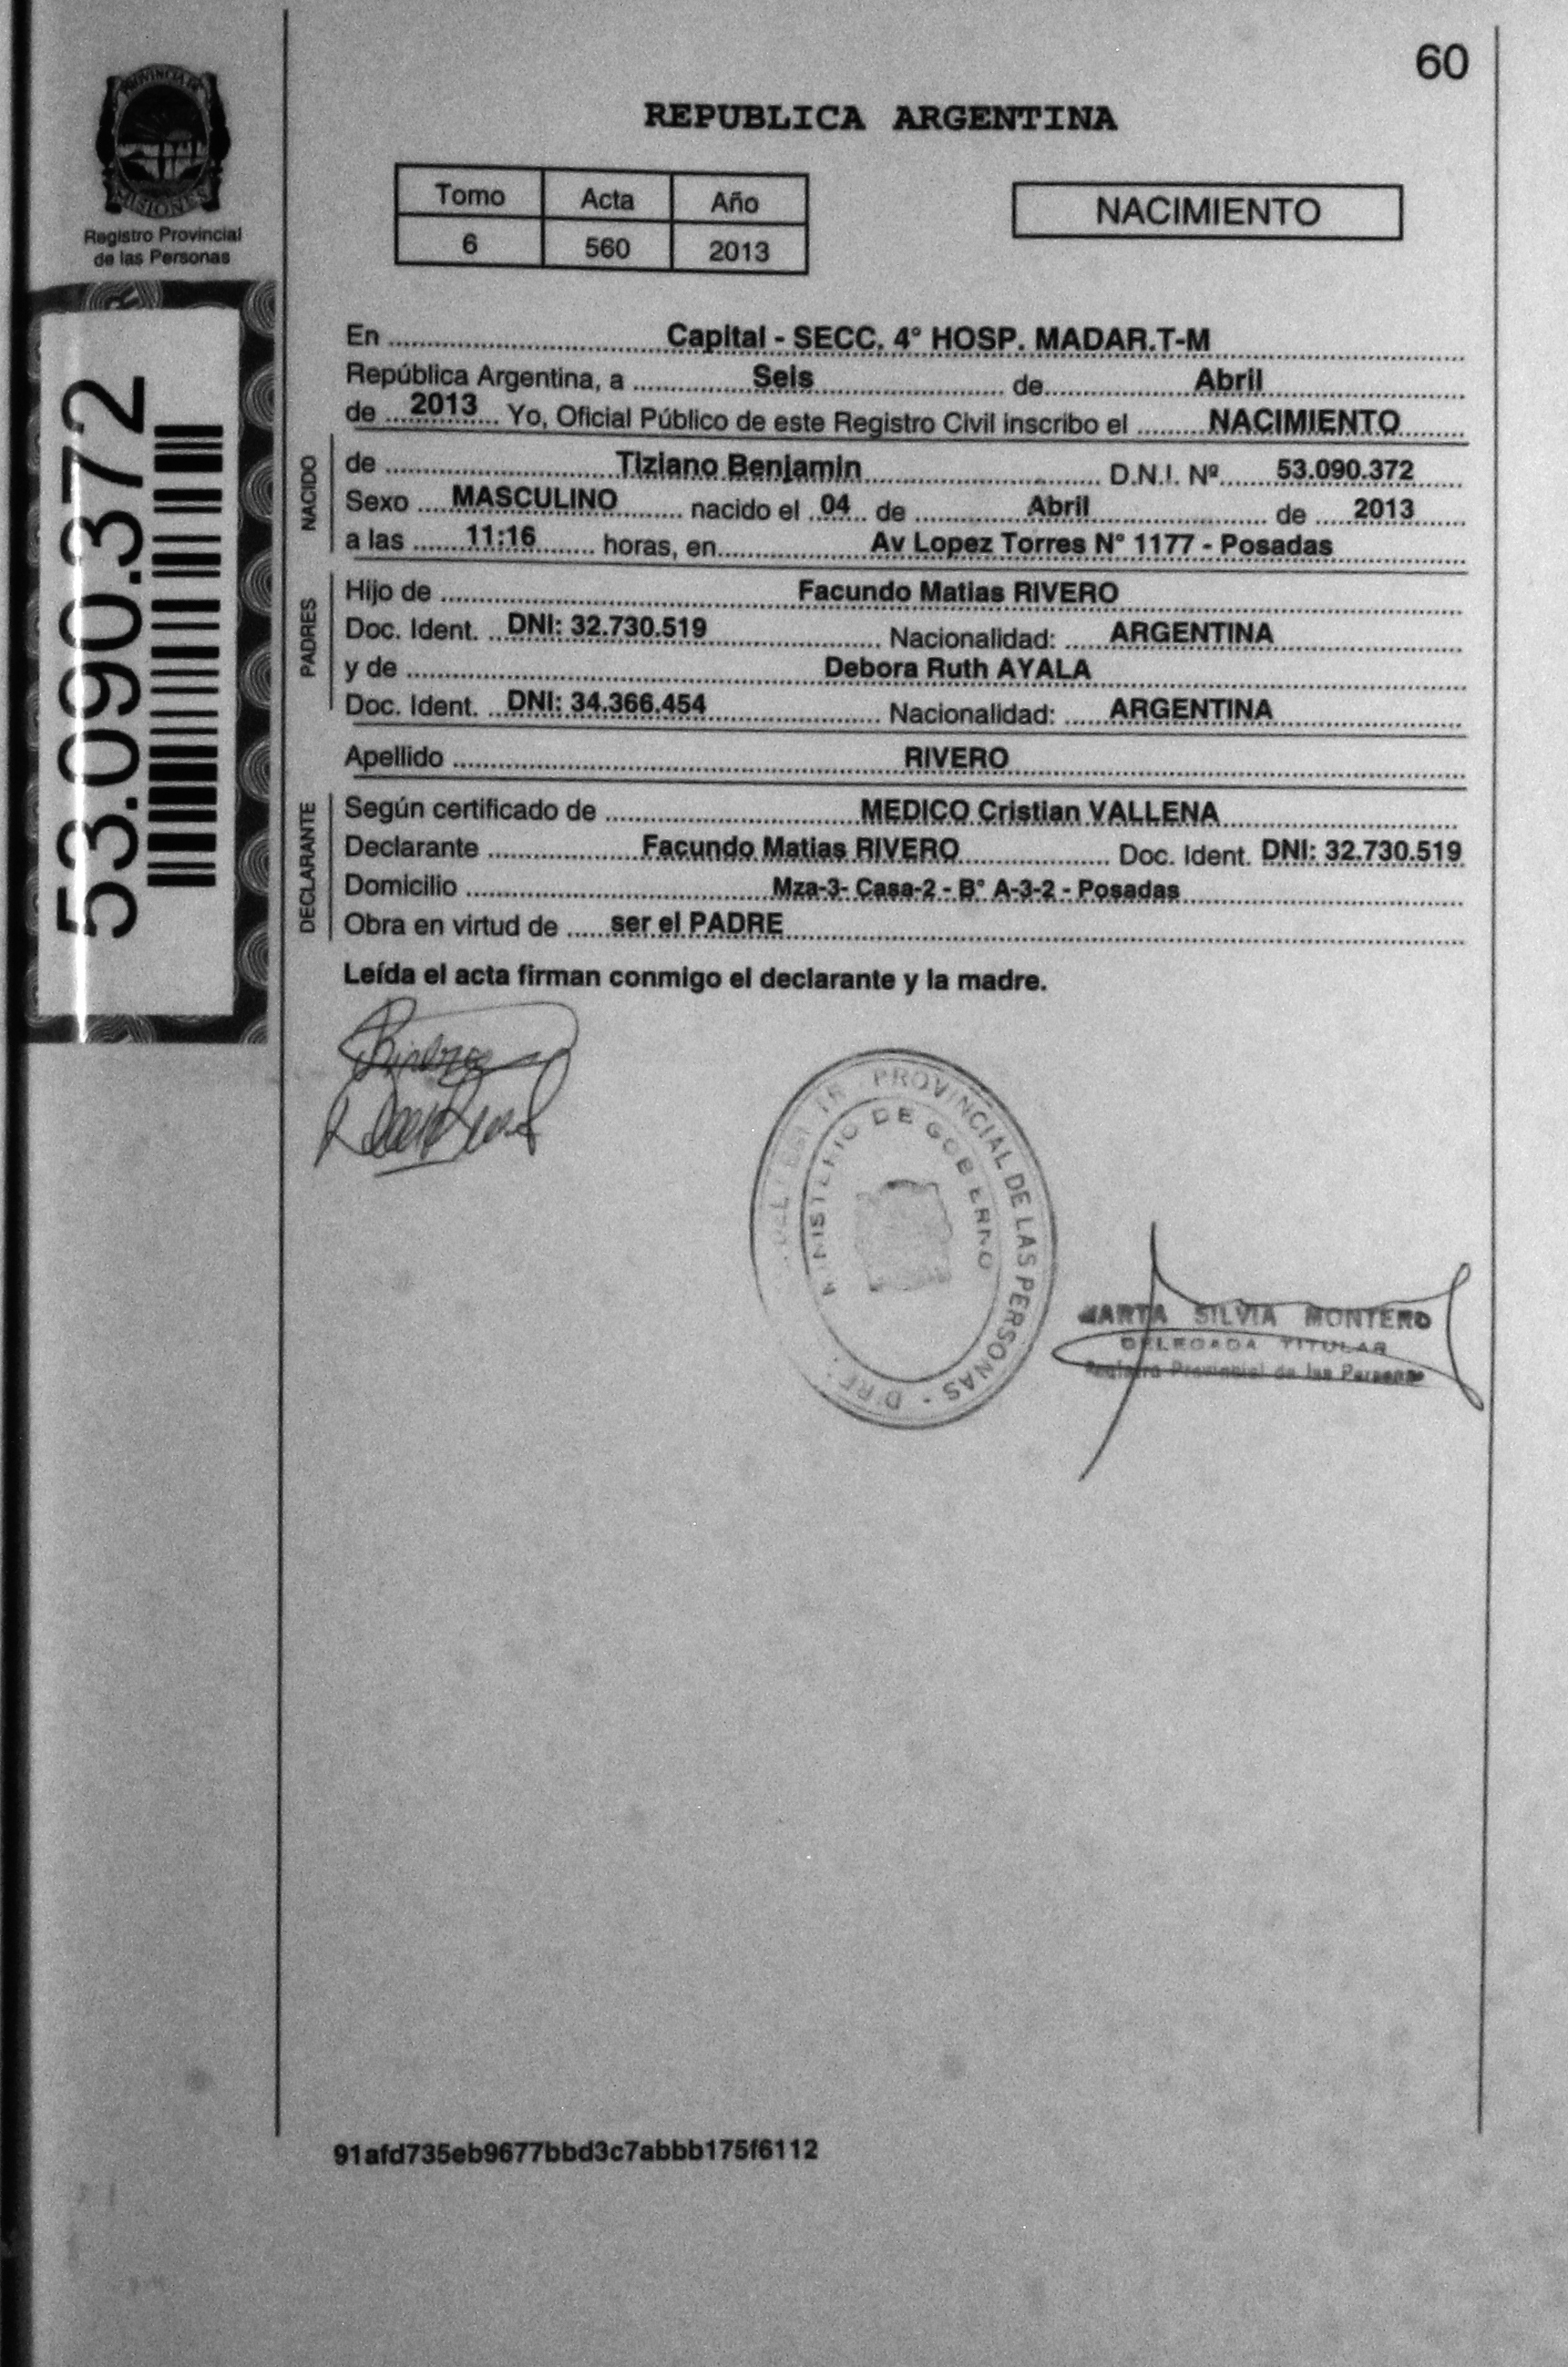 60
PROVINCIA DE
MISIONES
Registro Provincial
de las Personas
53.090.372
REPUBLICA ARGENTINA
Tomo Acta Año
6 560 2013
NACIMIENTO
En Capital - SECC. 4° HOSP. MADAR.T-M
República Argentina, a Seis de Abril
de 2013 Yo, Oficial Público de este Registro Civil inscribo el NACIMIENTO
NACIDO
de Tiziano Benjamin D.N.I. Nº 53.090.372
Sexo MASCULINO nacido el 04 de Abril de 2013
a las 11:16 horas, en Av Lopez Torres N° 1177 - Posadas
PADRES
Hijo de Facundo Matias RIVERO
Doc. Ident. DNI: 32.730.519 Nacionalidad: ARGENTINA
y de Debora Ruth AYALA
Doc. Ident. DNI: 34.366.454 Nacionalidad: ARGENTINA
Apellido RIVERO
DECLARANTE
Según certificado de MEDICO Cristian VALLENA
Declarante Facundo Matias RIVERO Doc. Ident. DNI: 32.730.519
Domicilio Mza-3- Casa-2 - B° A-3-2 - Posadas
Obra en virtud de ser el PADRE
Leída el acta firman conmigo el declarante y la madre.
PROVINCIAL DE LAS PERSONAS
MINISTERIO DE GOBIERNO
MARTA SILVIA MONTERO
DELEGADA TITULAR
Registro Provincial de las Personas
91afd735eb9677bbd3c7abbb175f6112